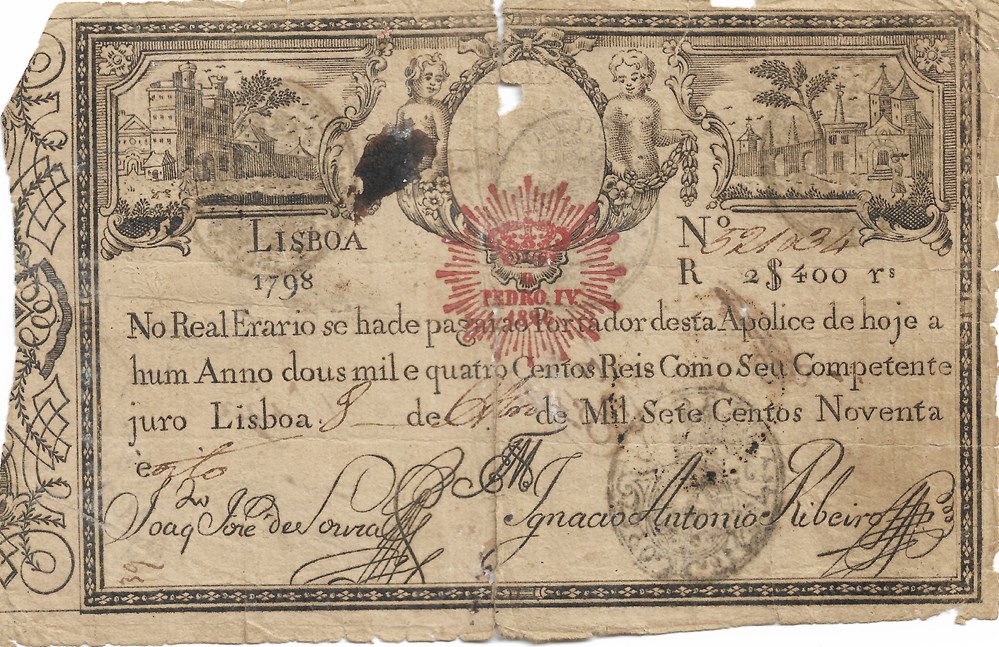 LISBOA
1798
Nº 
R 2$400 rs
PEDRO, IV.
1826
No Real Erario se hade pagar ao Portador desta Apolice de hoje a
hum Anno dous mil e quatro Centos Reis Com o Seu Competente
juro Lisboa 8 de de Mil Sete Centos Noventa
e oito
Joaq Jozé de Souza
Ignacio Antonio Ribeiro
39